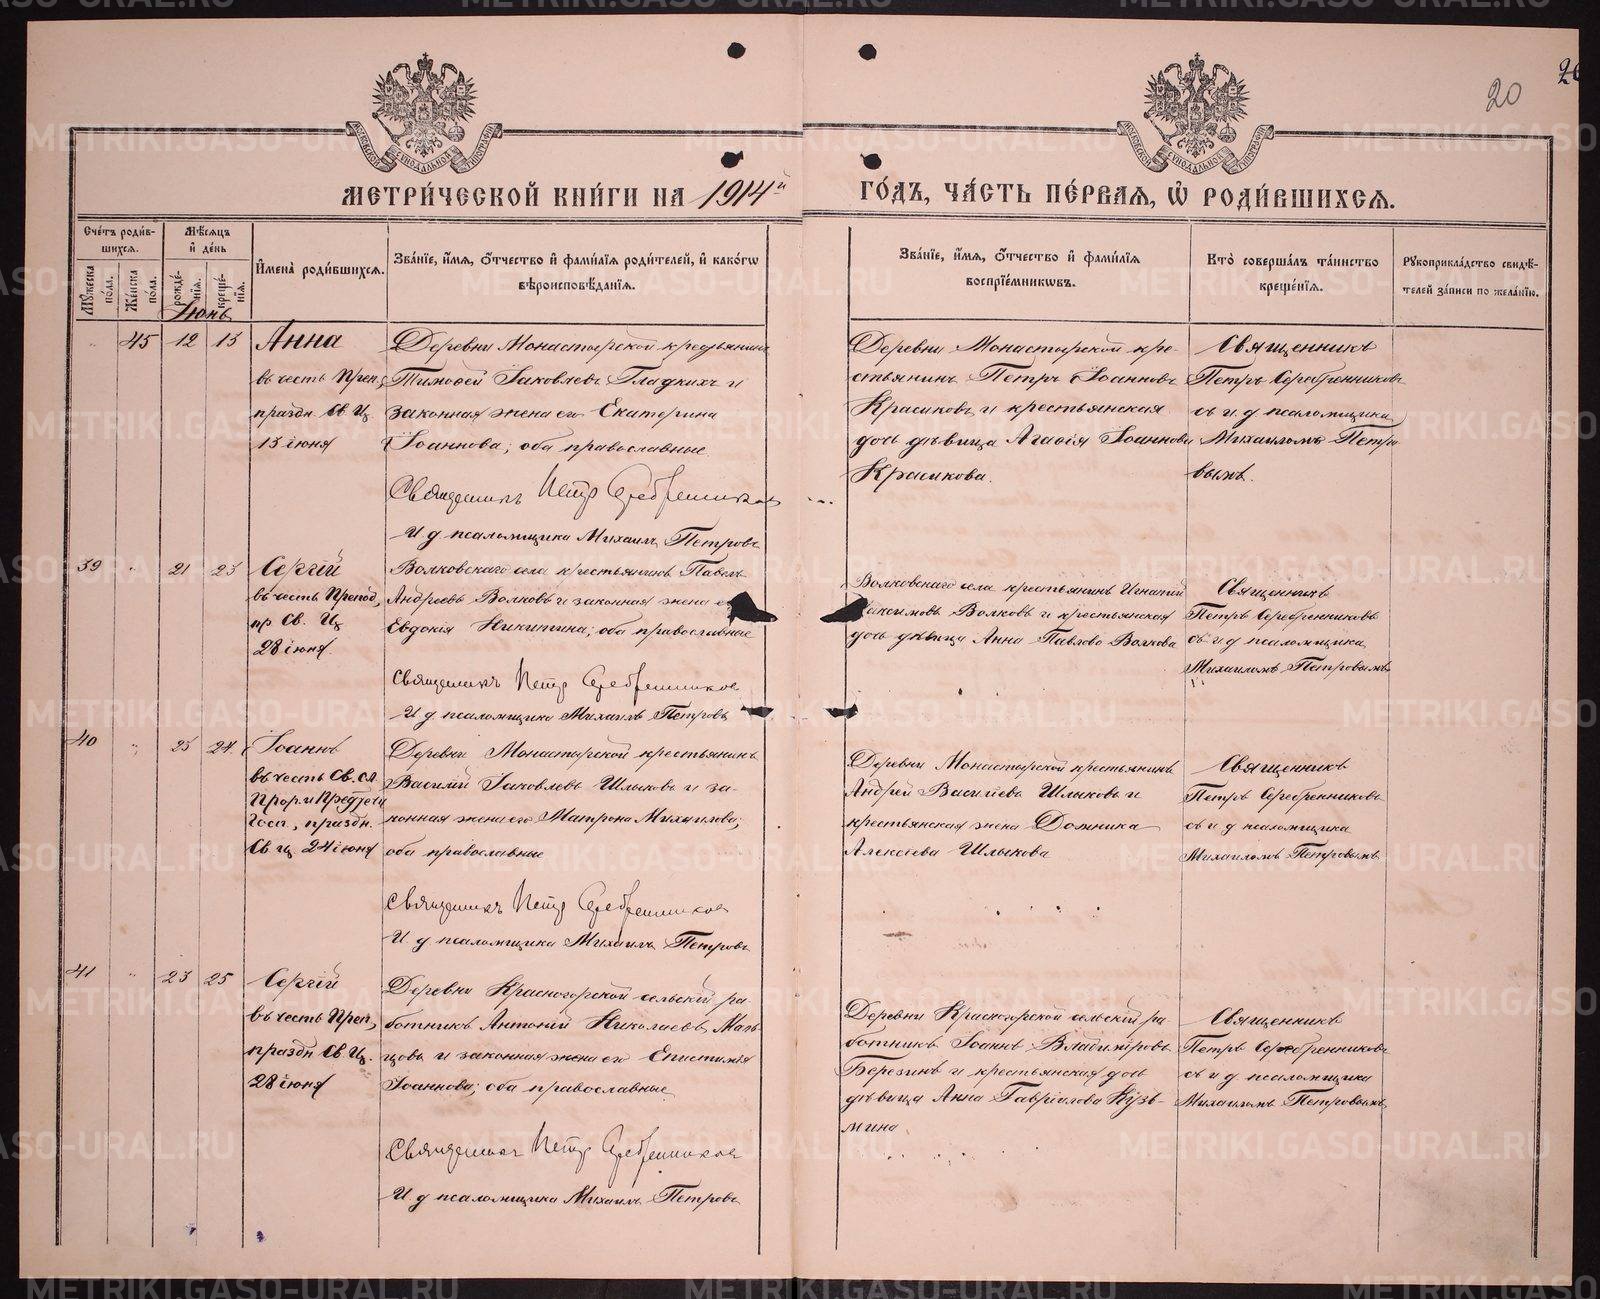 20
20
МЕТРИЧЕСКОЙ КНИГИ НА 1914й
ГОДЪ, ЧАСТЬ ПЕРВАЯ, Ѡ РОДИВШИХСЯ.
Счетъ родив-
шихся.
Мужеска
пола.
Женска
пола.
Мѣсяцъ
и день
рожде-
нія.
креще-
нія.
Имена родившихся.
Званіе, имя, отчество и фамилія родителей, и какогѡ
вѣроисповѣданія.
Званіе, имя, отчество и фамилія
воспріемникѡвъ.
Кто совершалъ таинство
крещенія.
Рукоприкладство свидѣ-
телей записи по желанію.
Іюнь
" 45 12 13
Анна
въ честь Преп,
праздн. Св. Ц
13 іюня
Деревни Монастырской крестьянинъ
Тимофей Іаковлевъ Гладкихъ и
законная жена его Екатерина
Іоаннова; оба православные.
Священникъ Петр Серебренников
И. д псаломщика Михаилъ Петровъ
Деревни Монастырской кре-
стьянинъ Петръ Іоанновъ
Красиковъ и крестьянская
дочь дѣвица Агаѳія Іоаннова
Красикова.
Священникъ
Петръ Серебренниковъ
съ и. д псаломщика
Михаиломъ Петро
вымъ.
39 " 21 23
Сергій
въ честь Препод,
пр Св. Ц
28 іюня.
Волковскаго села крестьянинъ Павелъ
Андреевъ Волковъ и законная жена е
Евдокія Никитина; оба православные
Священникъ Петр Серебренников
И д псаломщика Михаилъ Петровъ
Волковскаго села крестьянинъ Игнатій
Максимовъ Волковъ и крестьянская
дочь дѣвица Анна Павлова Волкова
Священникъ
Петръ Серебренниковъ
съ и д псаломщика
Михаиломъ Петровымъ
40 " 23 24.
Іоаннъ
въ честь Св. сл.
Прор. и Предтечи
Госп., праздн.
Св ц 24 іюня
Деревни Монастырской крестьянинъ
Василій Іаковлевъ Шлыковъ и за-
конная жена его Матрона Михаилова;
оба православные
Священникъ Петр Серебренников
И. д псаломщика Михаилъ Петровъ
Деревни Монастырской крестьянинъ
Андрей Василіевъ Шлыковъ и
крестьянская жена Домника
Алексіева Шлыкова
Священникъ
Петръ Серебренниковъ
съ и д псаломщика
Михаиломъ Петровымъ
41 " 23 25
Сергій
въ честь Преп,
праздн Св. Ц.
28 іюня
Деревни Красногорской сельскій ра-
ботникъ Антоній Николаевъ Маль
цовъ и законная жена его Епистимія
Іоаннова; оба православные.
Священникъ Петр Серебренников
И. д псаломщика Михаилъ Петровъ
Деревни Красногорской сельскій ра-
ботникъ Іоаннъ Владиміровъ
Березинъ и крестьянская дочь
дѣвица Анна Гавріилова Кузь-
мина.
Священникъ
Петръ Серебренниковъ
съ и д псаломщика
Михаиломъ Петровымъ
METRIKI.GASO-URAL.RU